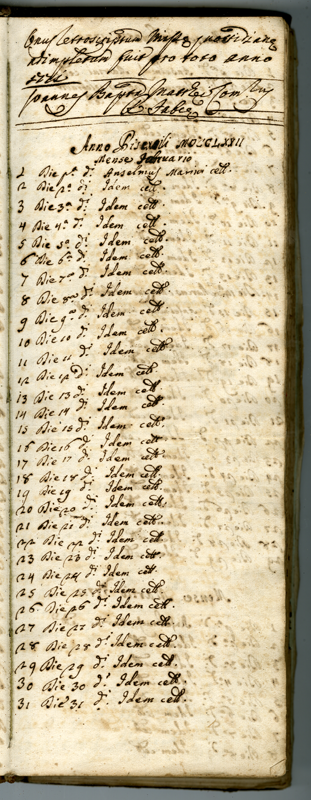 Onus retroscriptum Missæ
adimpletum fuit pro toto anno
Joannes Bapta Matthei
Anno Bisextili MDCCLXXII
Mense Januario
1 Die pa. dl. Anselmus Marini cell.
2 Die 2a. dl. Idem cell.
3 Die 3a. dl. Idem cell.
4 Die 4a. dl. Idem cell.
5 Die 5a. dl. Idem cell.
6 Die 6a. dl. Idem cell.
7 Die 7a. dl. Idem cell.
8 Die 8a. dl. Idem cell.
9 Die 9a. dl. Idem cell.
10 Die 10 dl. Idem cell.
11 Die 11 dl. Idem cell.
12 Die 12 dl. Idem cell.
13 Die 13 dl. Idem cell.
14 Die 14 dl. Idem cell.
15 Die 15 dl. Idem cell.
16 Die 16 dl. Idem cell.
17 Die 17 dl. Idem cell.
18 Die 18 dl. Idem cell.
19 Die 19 dl. Idem cell.
20 Die 20 dl. Idem cell.
21 Die 21 dl. Idem cell.
22 Die 22 dl. Idem cell.
23 Die 23 dl. Idem cell.
24 Die 24 dl. Idem cell.
25 Die 25 dl. Idem cell.
26 Die 26 dl. Idem cell.
27 Die 27 dl. Idem cell.
28 Die 28 dl. Idem cell.
29 Die 29 dl. Idem cell.
30 Die 30 dl. Idem cell.
31 Die 31 dl. Idem cell.